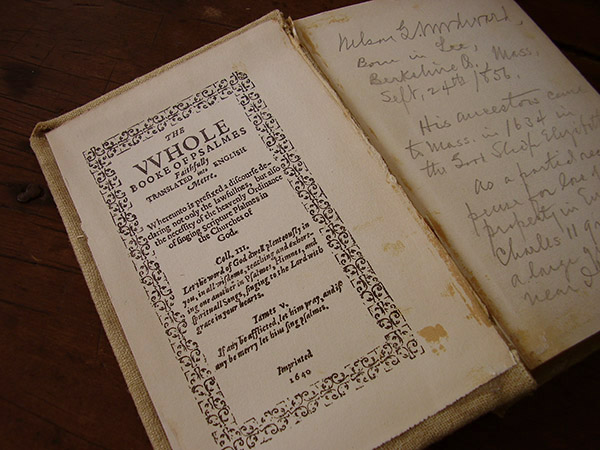 THE
VVHOLE
BOOKE OF PSALMES
Faithfully
TRANSLATED into ENGLISH
Metre.
Whereunto is prefixed a discourse de-
claring not only the lawfullnes, but also
the necessity of the heavenly Ordinance
of singing Scripture Psalmes in
the Churches of
God.
Coll. III.
Let the word of God dwell plenteously in
you, in all wisdome, teaching and exhort-
ing one another in Psalmes, Himnes, and
spirituall Songs, singing to the Lord with
grace in your hearts.
James V.
If any be afflicted, let him pray, and if
any be merry let him sing psalmes.
Imprinted
1640
Nelson G. Woodward,
Born in Lee,
Mass.
Sept. 24th 1856.
His ancestors came
to Mass. in 1634 in
the Ship
as a
for loss of
property in
Charles II
a large
near